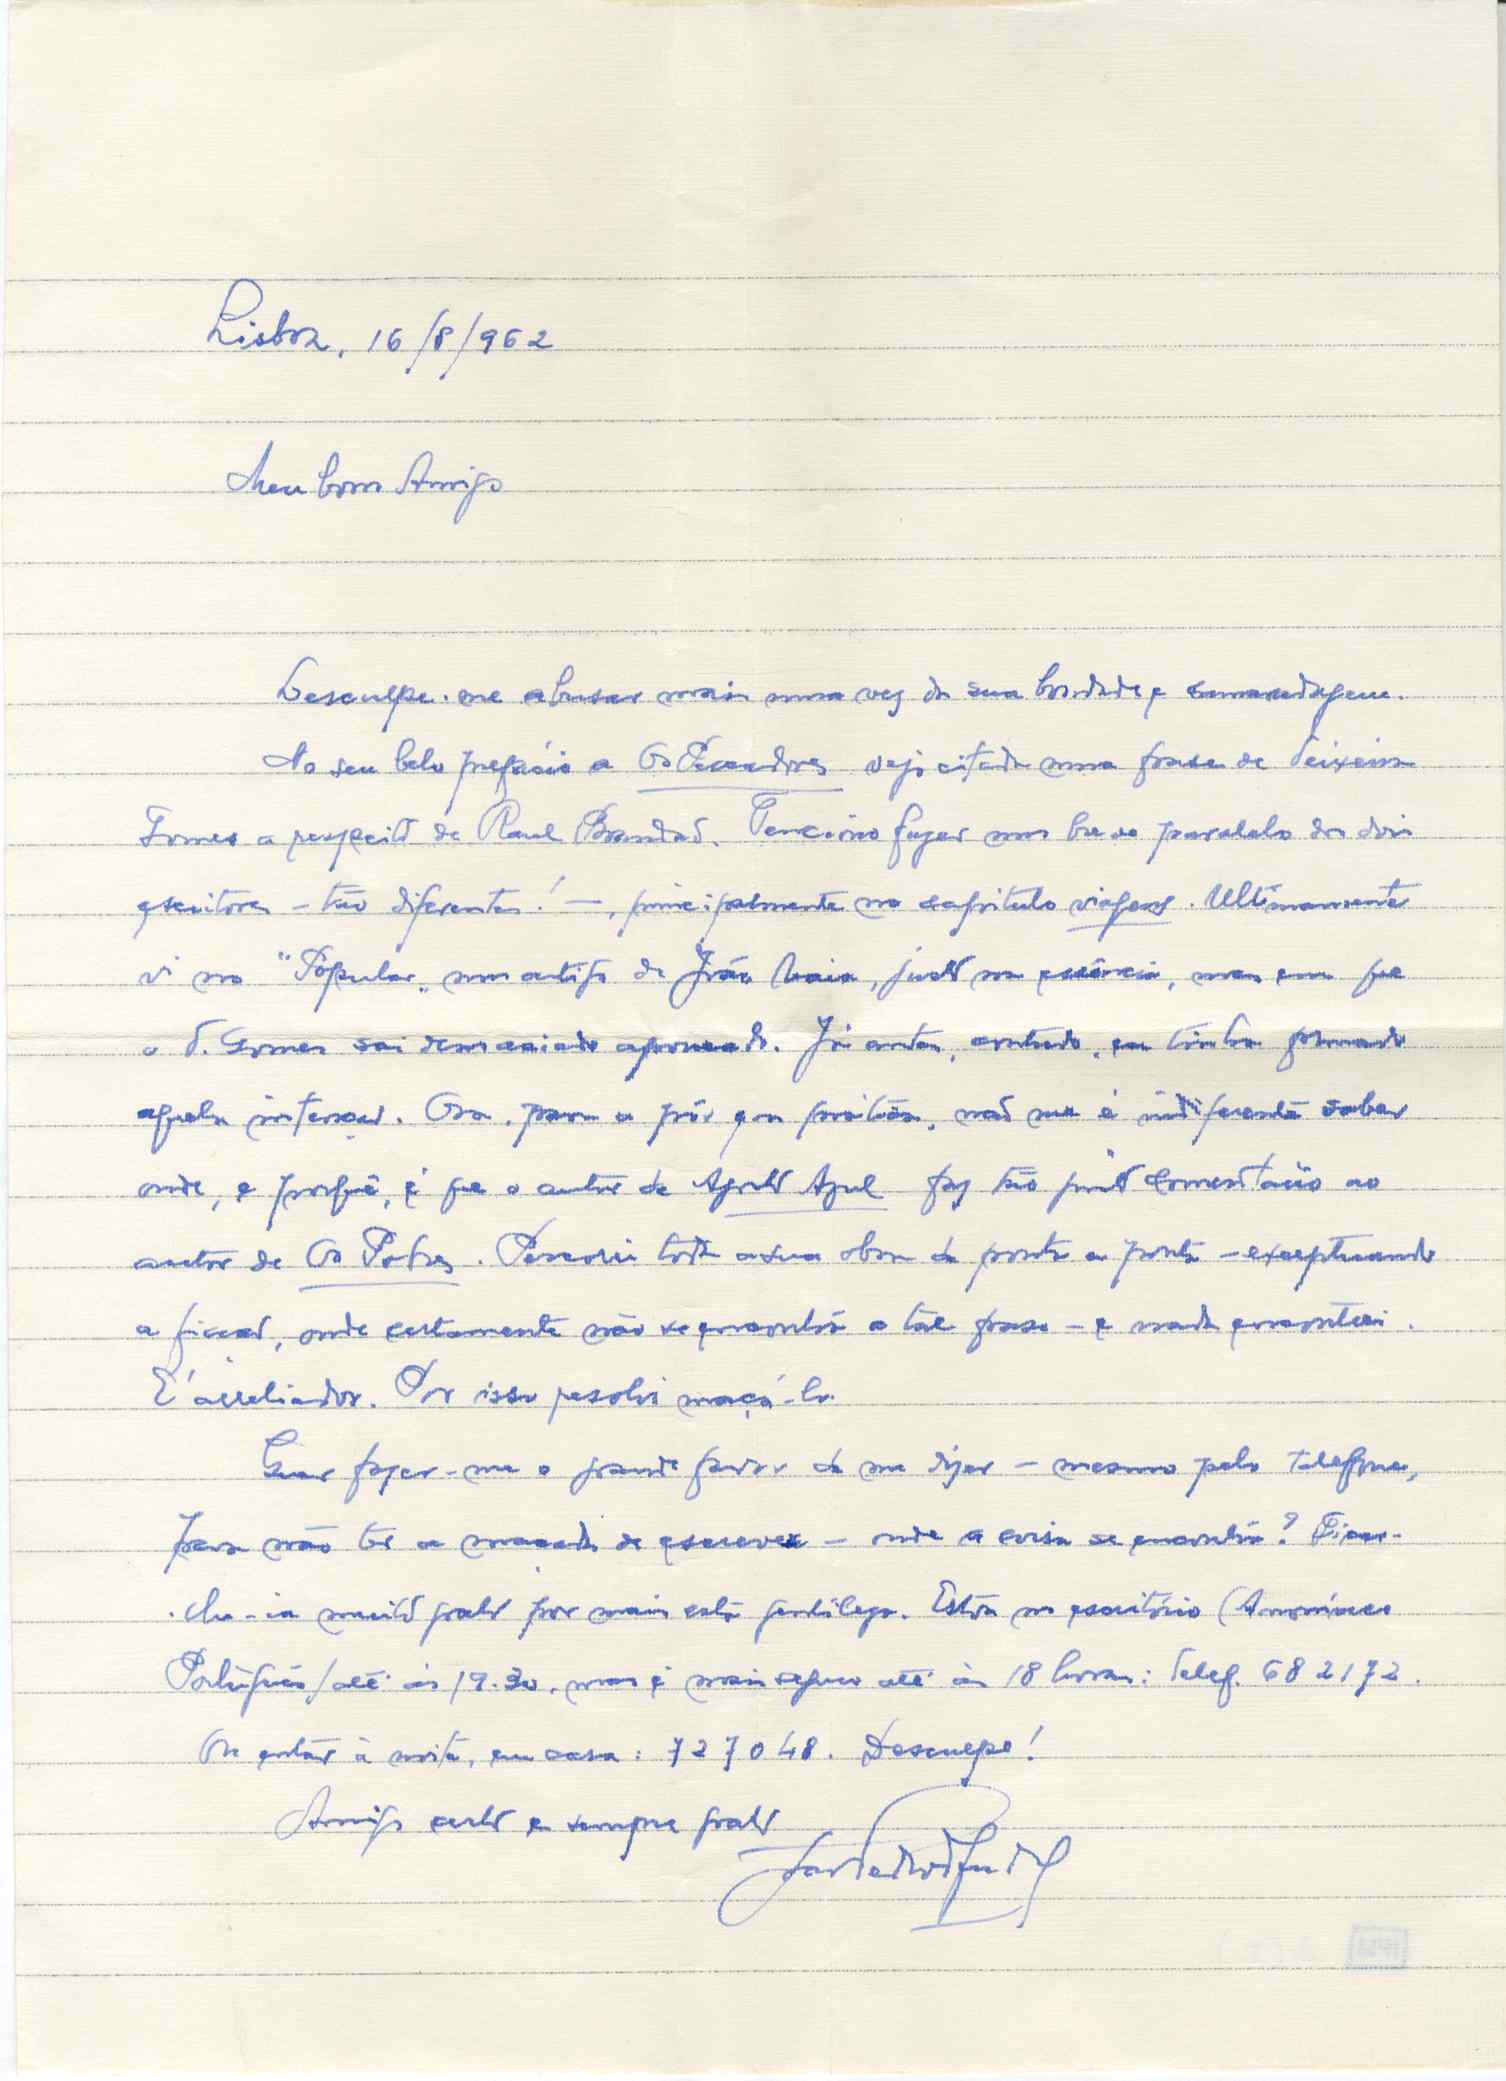 Lisboa, 16/8/962
Meu bom Amigo
Desculpe-me abusar mais uma vez da sua bondade e camaradagem.
No seu belo prefácio a Os Pescadores vejo citada uma frase de Teixeira
Gomes a respeito de Raul Brandão. Tenciono fazer um breve paralelo dos dois
escritores – tão diferentes! –, principalmente no capítulo viagens. Ultimamente
vi no "Popular" um artigo de João Maia, justo na essência, mas em que
o T. Gomes sai demasiado apoucado. Já antes, contudo, eu tinha formado
aquela intenção. Ora, para a pôr em prática, não me é indiferente saber
onde, e porquê, é que o autor de Agosto Azul faz tão justo comentário ao
autor de Os Pobres. Percorri toda a sua obra de ponta a ponta – exceptuando
a ficção, onde certamente não se encontra a tal frase – e nada encontrei.
É arreliador. Por isso resolvi maçá-lo.
Quer fazer-me o grande favor de me dizer – mesmo pelo telefone,
para não ter a maçada de escrever – onde a coisa se encontra? Ficar-
-lhe-ia muito grato por mais esta gentileza. Estou no escritório (Amoníaco
Português) até às 19.30, mas é mais seguro até às 18 horas: Telef. 682172.
Ou então à noite, em casa: 727048. Desculpe!
Amigo certo e sempre grato